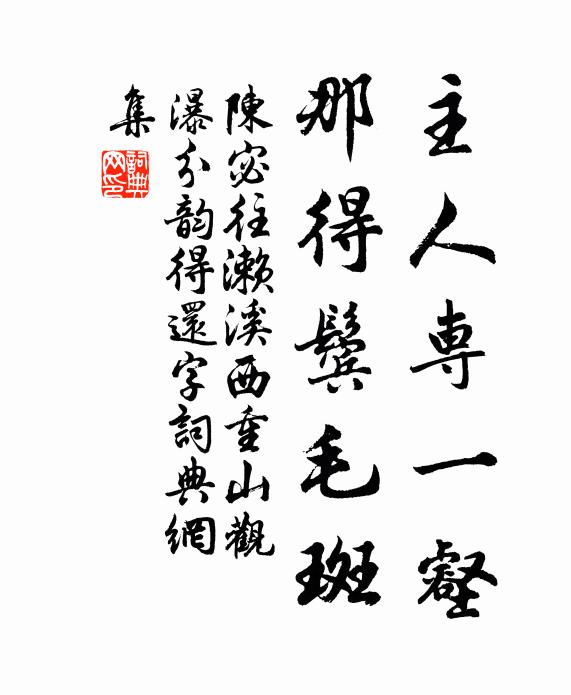 主人專一壑
那得鬢毛斑
陳宓往瀨溪西重山觀
瀑分韵得還字詞典網
集
詞典網印